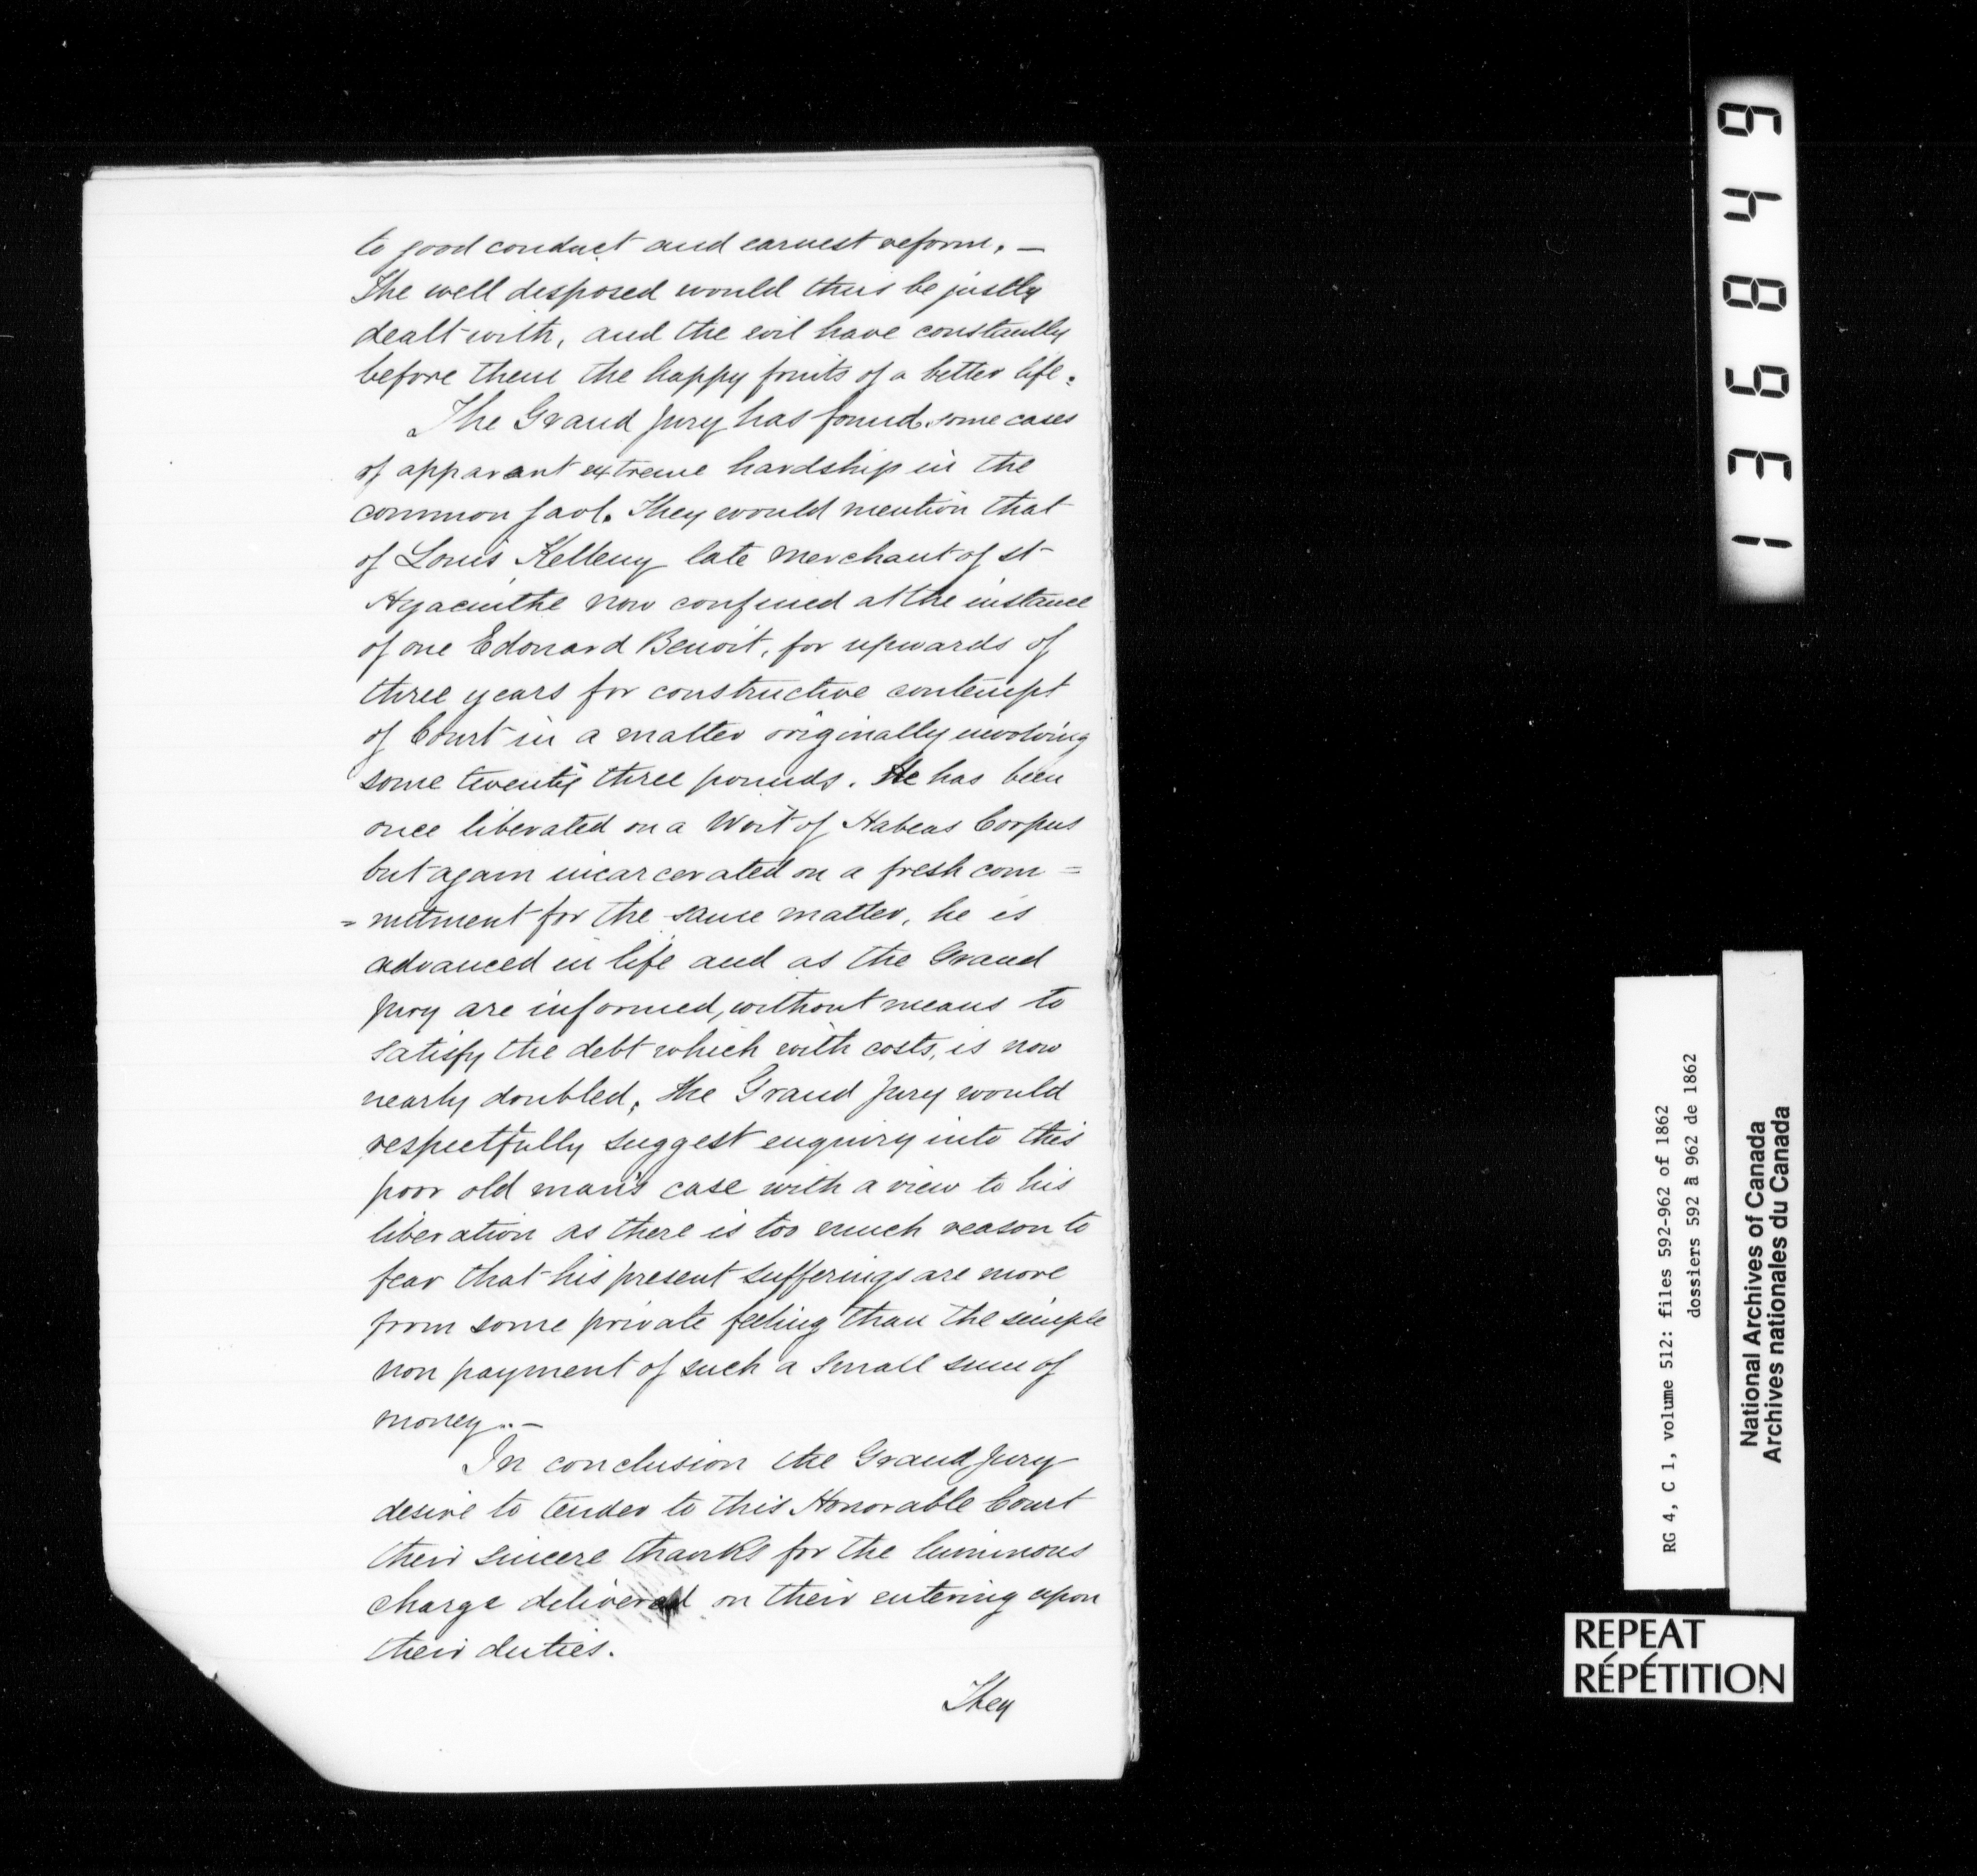 to good conduct and earnest reform. —
The well disposed would thus be justly
dealt with, and the evil have constantly
before them the happy fruits of a better life.
The Grand Jury has found some cases
of apparant extreme hardship in the
common Jaol. They would mention that
of Louis Kelleny late Merchant of St
Hyacinthe now confined at the instance
of one Edouard Benoit, for upwards of
three years for constructive contempt
of Court in a matter originally involving
some twenty three pounds. He has been
once liberated on a Writ of Habeas Corpus
but again incarcerated on a fresh com =
= mitment for the same matter, he is
advanced in life and as the Grand
Jury are informed, without means to
satisfy the debt which with costs, is now
nearly doubled, the Grand Jury would
respectfully suggest enquiry into this
poor old man's case with a view to his
liberation as there is too much reason to
fear that his present sufferings are more
from some private feeling than the simple
non payment of such a small sum of
money. —
In conclusion the Grand Jury
desire to tender to this Honorable Court
their sincere thanks for the luminous
charge delivered on their entering upon
their duties.
They
136849
RG 4, C 1, volume 512: files 592-962 of 1862
dossiers 592 à 962 de 1862
National Archives of Canada
Archives nationales du Canada
REPEAT
RÉPÉTITION